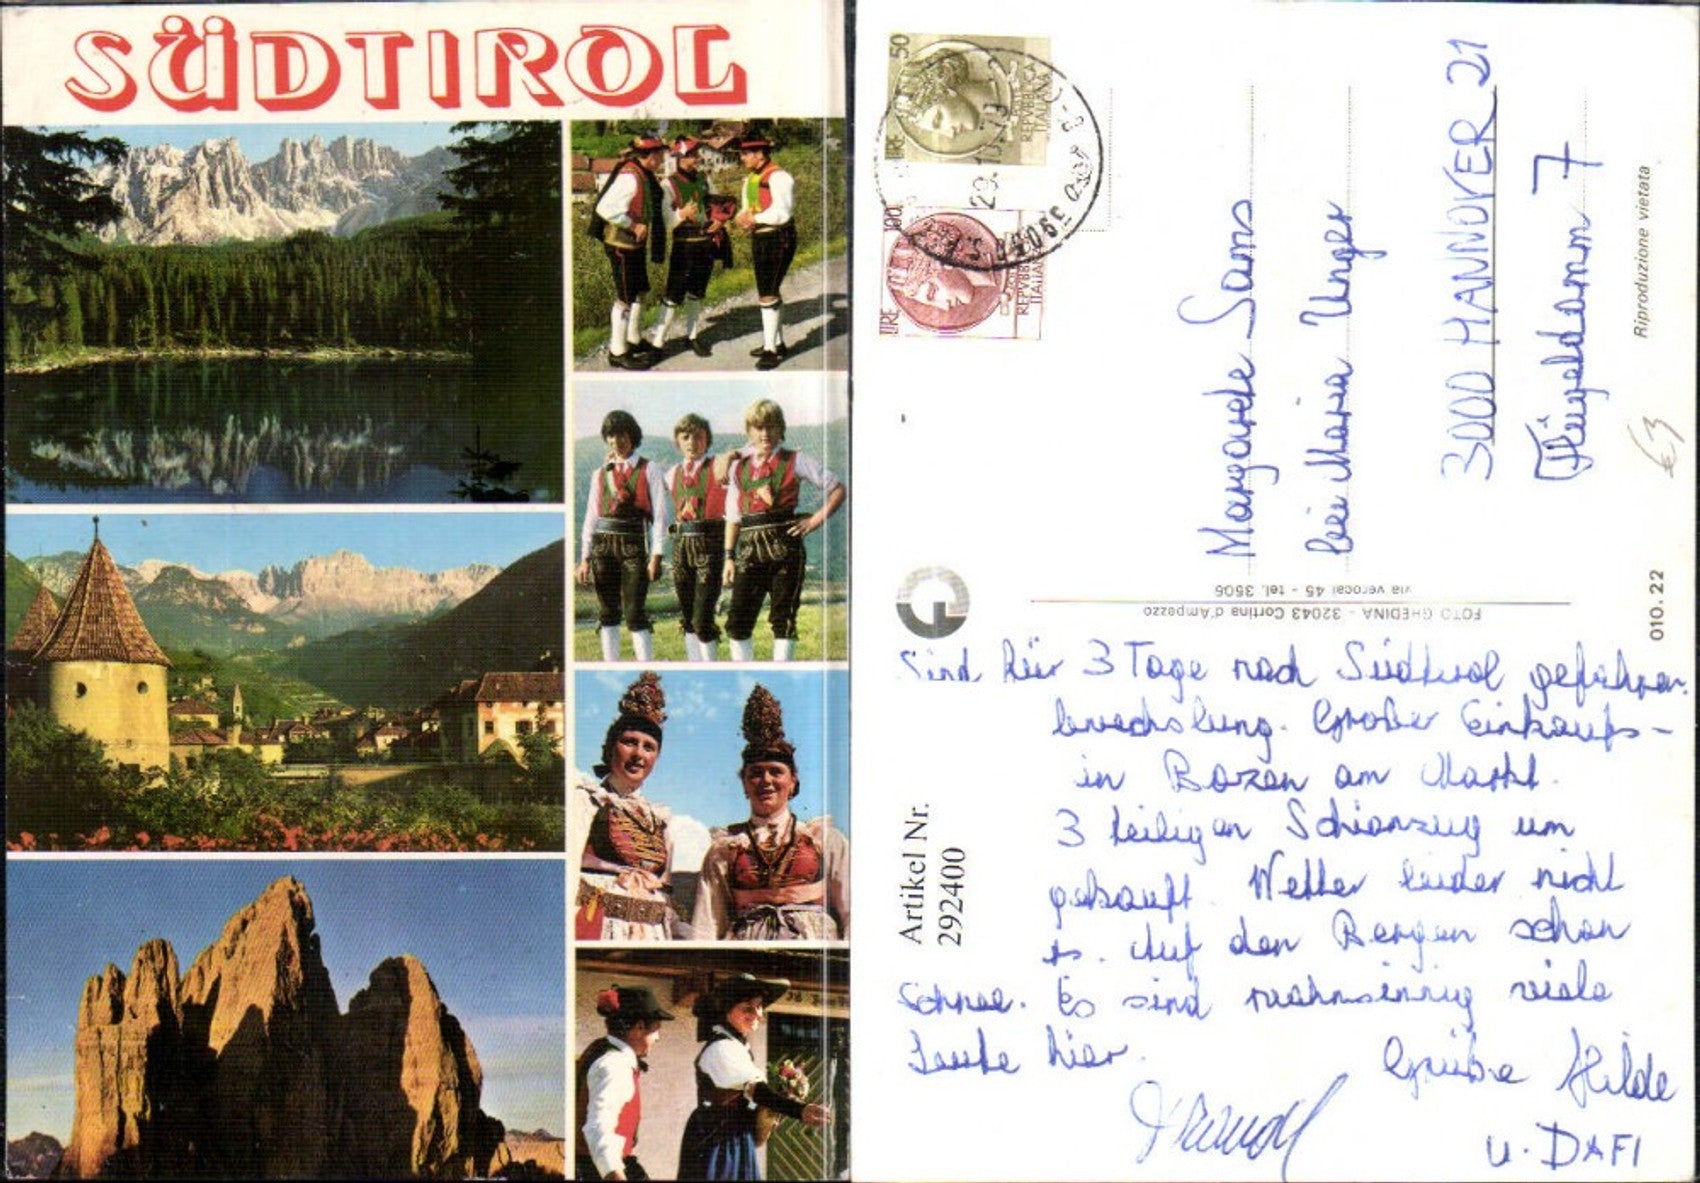 SÜDTIROL
LIRE 50
REPVBBLICA
ITALIANA
LIRE 100
REPVBBLICA
ITALIANA
39040
Margarete Sams
bei Maria Unger
3000 HANNOVER 21
Flügeldamm 7
Riproduzione vietata
€3
010.22
FOTO GHEDINA - 32043 Cortina d'Ampezzo
via verocai 45 - tel. 3506
Artikel Nr.
292400
Sind für 3 Tage nach Südtirol gefahren.
Großer Einkaufs-
in Bozen am Markt.
3 Schianzug um
gekauft. Wetter leider nicht
Auf den Bergen schon
Schnee. Es sind wahnsinnig viele
Leute hier.
Grüße Hilde
u. DAFI